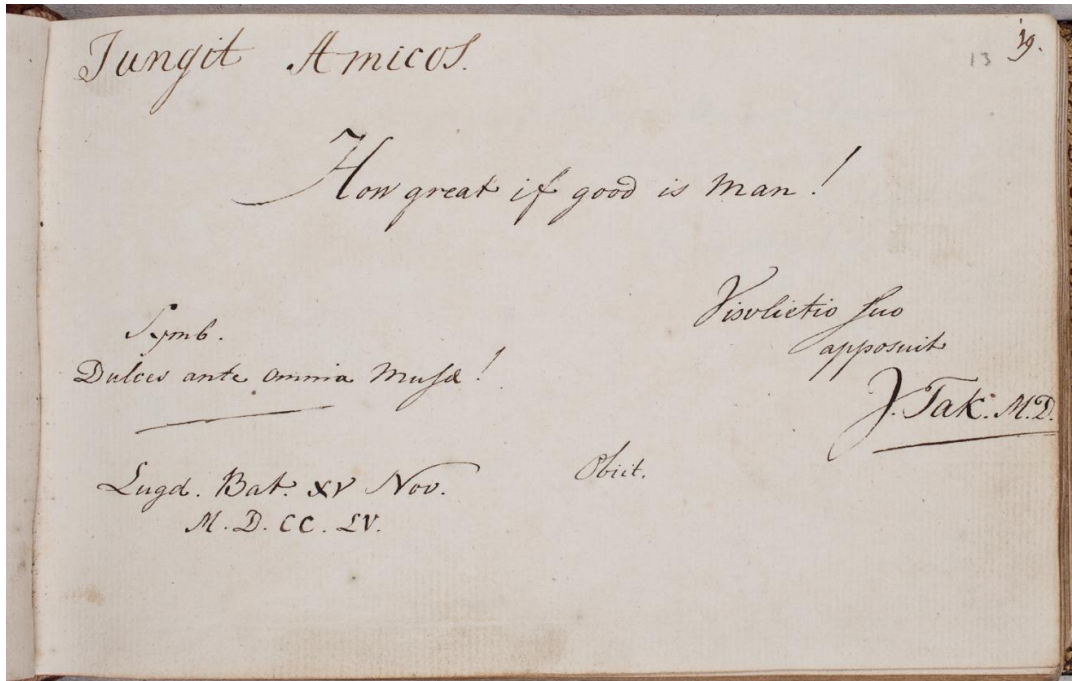 Jungit Amicos.
13 19.
How great if good is man!
Symb.
Dulces ante omnia Musæ!
suo
apposuit
J. Tak. M.D.
Lugd. Bat. XV Nov.
M. D. CC. LV.
Obiit.